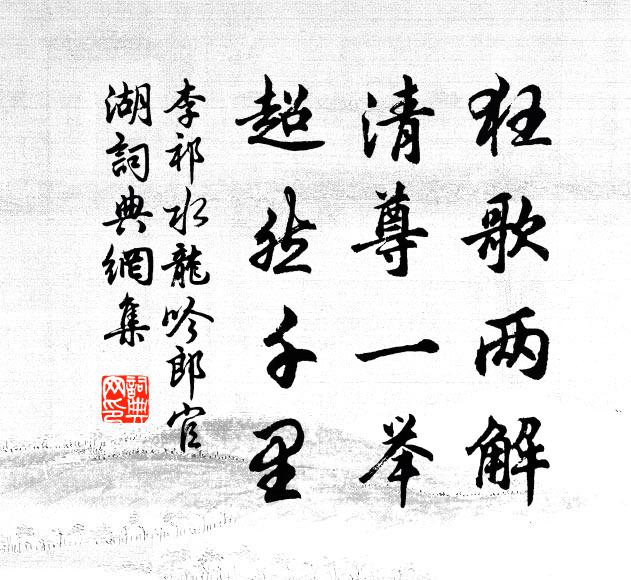 狂歌两解
清尊一举
超然千里
李祁水龍吟郎官
湖詞典網集
詞典
网印